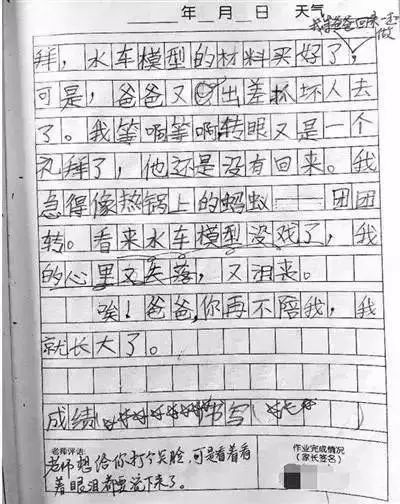 年 月 日 天气
我等爸爸回来一起
做
拜，水车模型的材料买好了，
可是，爸爸又出差抓坏人去
了。我等啊等啊转眼又是一个
礼拜了，他还是没有回来。我
急得像热锅上的蚂蚁——团团
转。看来水车模型没戏了，我
的心里又失落，又
唉！爸爸，你再不陪我，我
就长大了。
成绩 书写
老师评语：
老师想给你打个笑脸，可是看着看
着眼泪都要流下来了。
作业完成情况
（家长签名）